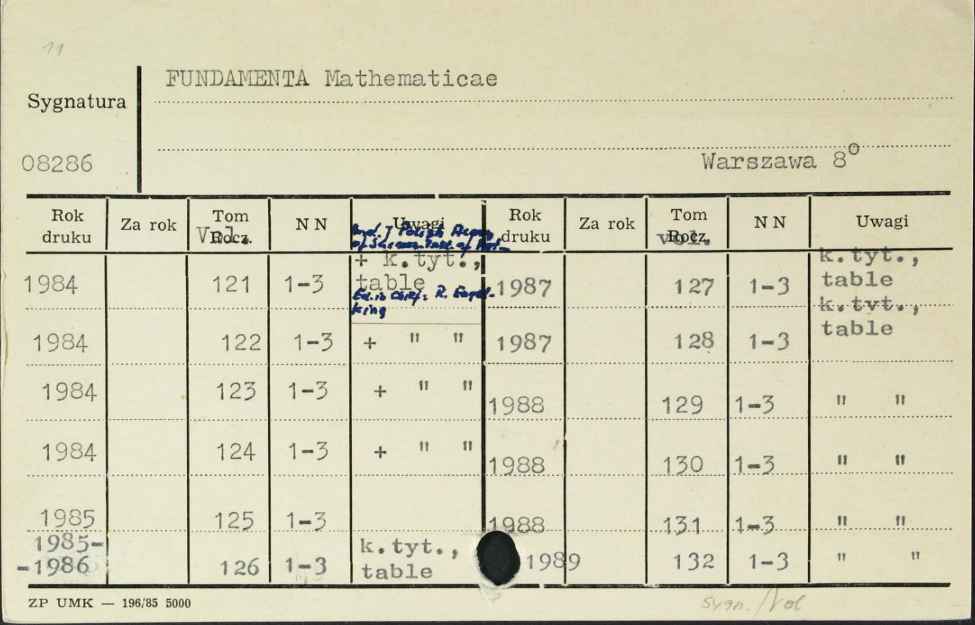 11
FUNDAMENTA Mathematicae
Sygnatura
08286
Warszawa 8°
Rok druku Za rok Tom Rocz. Vol. N N Uwagi Rok druku Za rok Tom Rocz. vol. N N Uwagi
of
+ k.tyt., k.tyt.,
1984 121 1-3 table 1987 127 1-3 table
Ed. in Chief: R. Engel-
king
k.tyt.,
1984 122 1-3 + " " 1987 128 1-3 table
1984 123 1-3 + " " 1988 129 1-3 " "
1984 124 1-3 + " " 1988 130 1-3 " "
1985 125 1-3 1988 131 1-3 " "
1985-
-1986 126 1-3 k.tyt., table 1989 132 1-3 " "
ZP UMK — 196/85 5000
Sygn./Vol